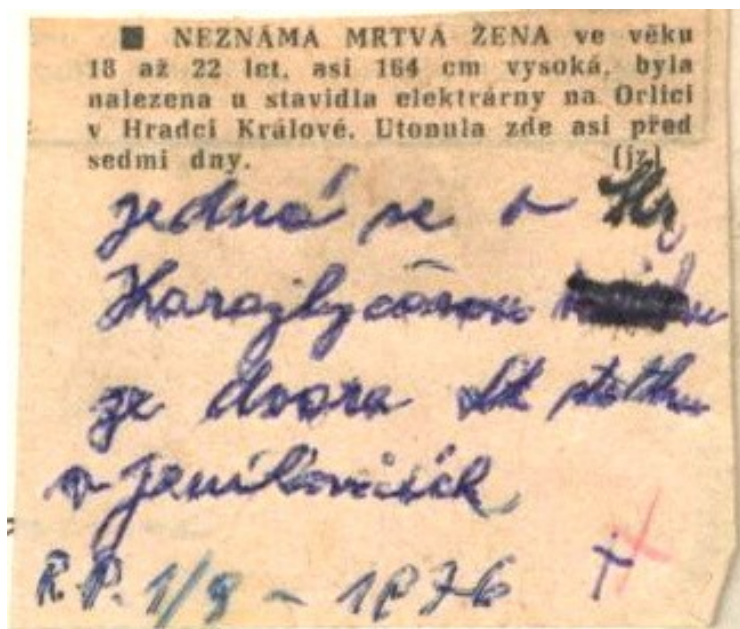 ■ NEZNÁMA MRTVÁ ŽENA ve věku
18 až 22 let, asi 164 cm vysoká, byla
nalezena u stavidla elektrárny na Orlici
v Hradci Králové. Utonula zde asi před
sedmi dny. (jz)
jedná se o
ze dvora st. statku
v Jeníkovicích
R.P. 1/9 - 1976 †